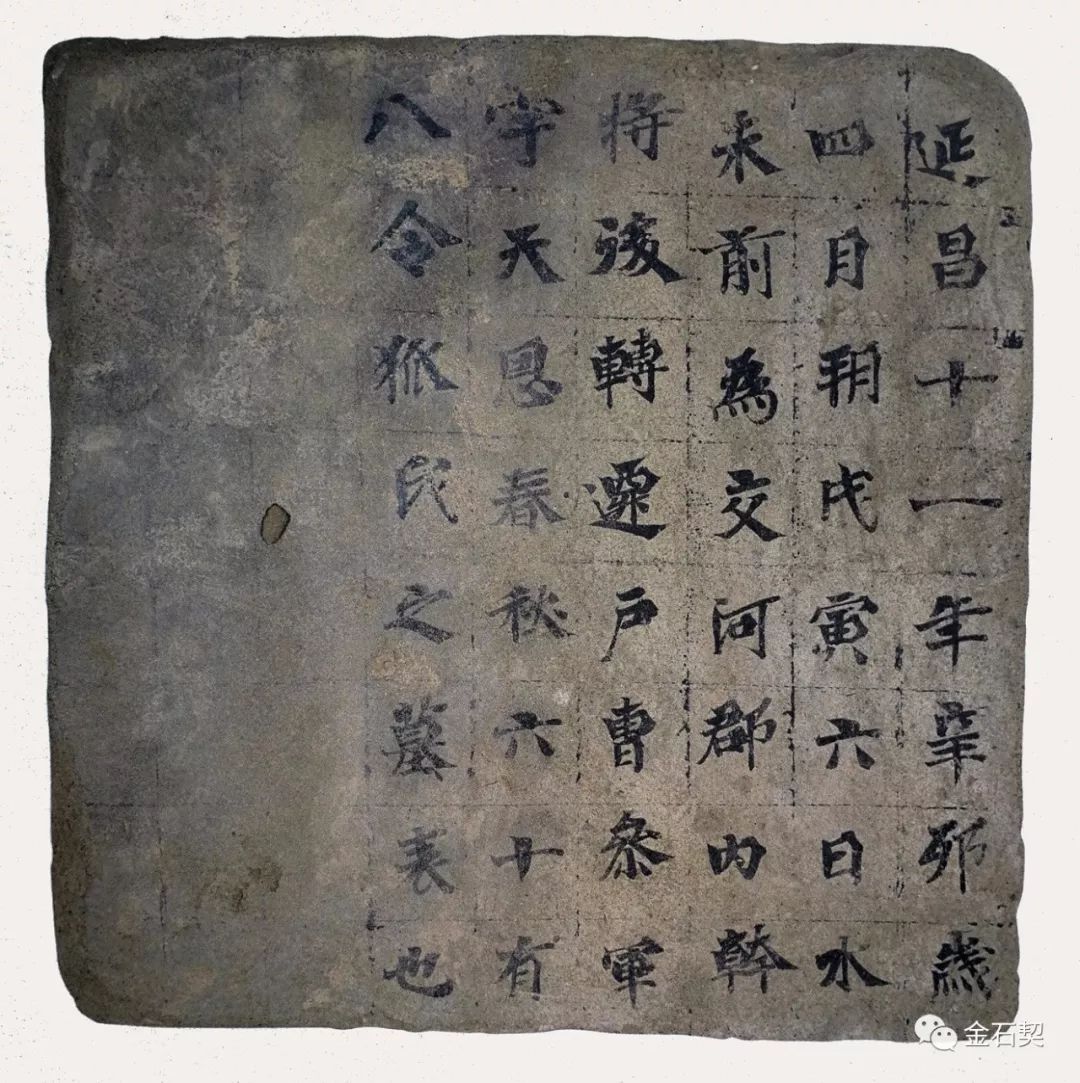 延昌十一年辛卯歲
四月朔戊寅六日水
未前為交河郡內幹
將後轉遷戶曹參軍
字天恩春秋六十有
八令狐氏之墓表也
金石契